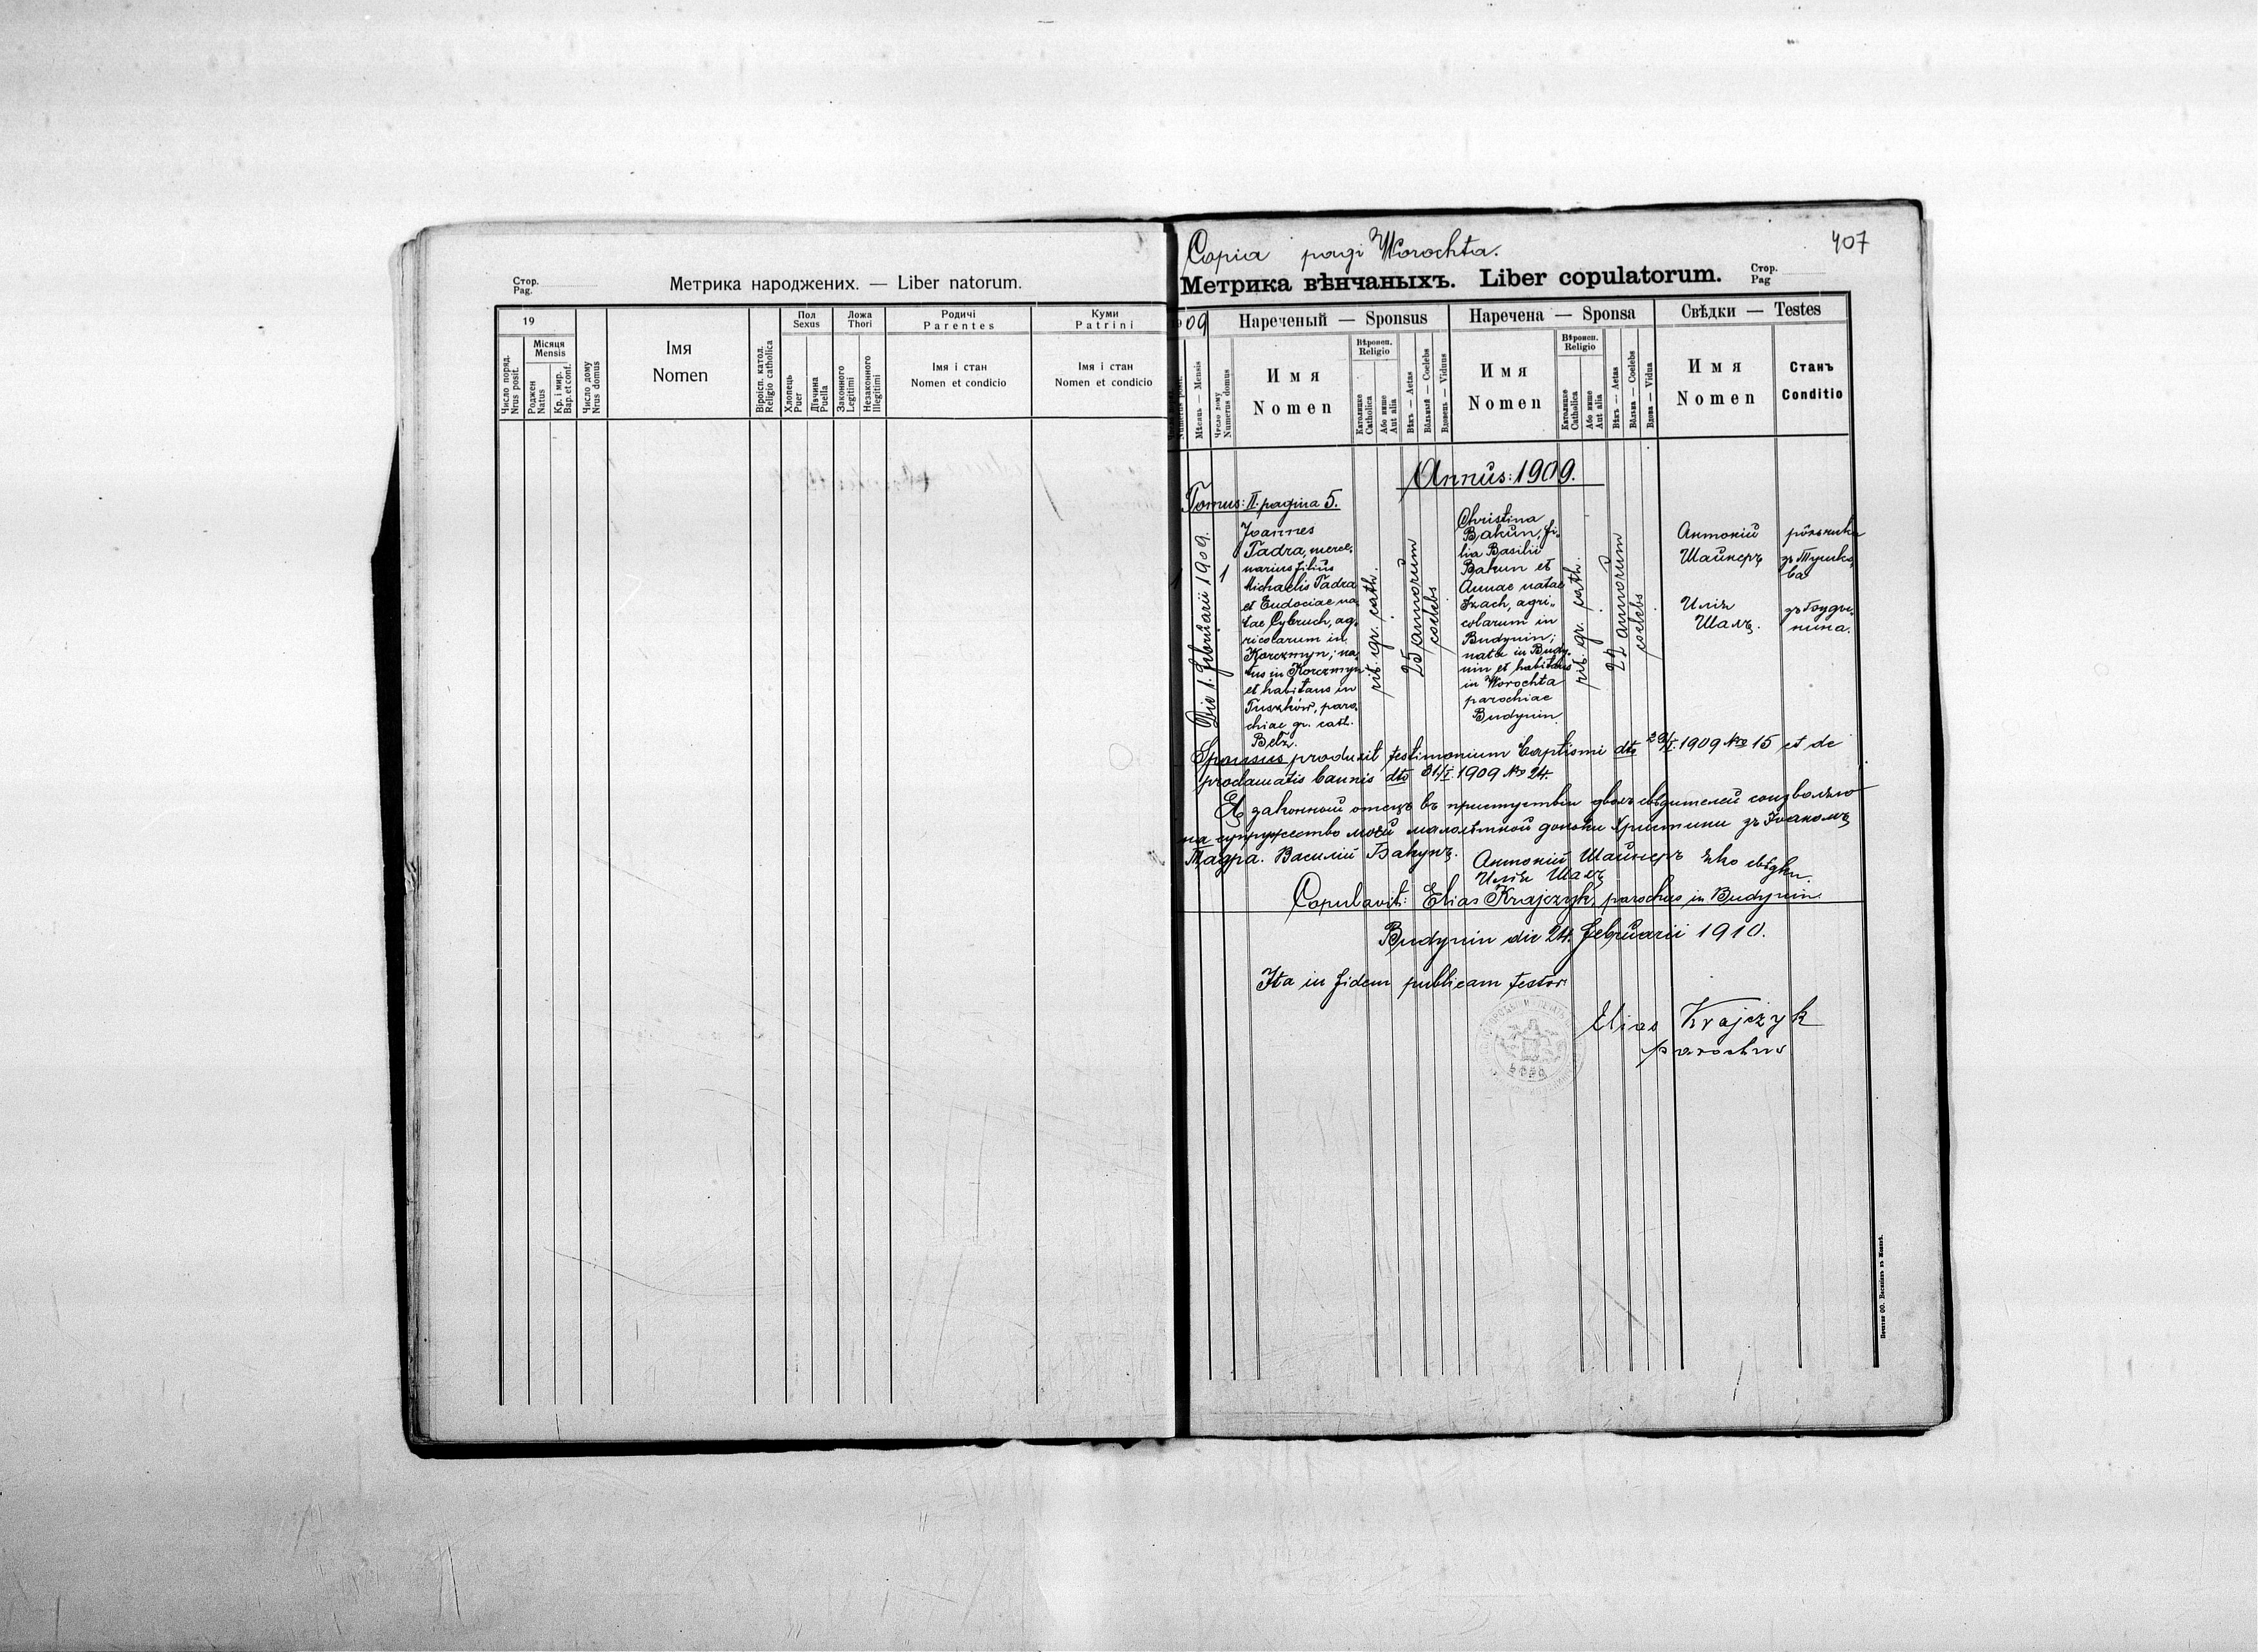 Стор.
Pag.
Метрика народжених. — Liber natorum.
19
Число поряд.
Nrus posit.
Місяця
Mensis
Роджен
Natus
Кр. і мир.
Bap. et conf.
Число дому
Nrus domus
Імя
Nomen
Віроісп. катол.
Religio catholica
Пол
Sexus
Хлопець
Puer
Дівчина
Puella
Ложа
Thori
Законного
Legitimi
Незаконного
Illegitimi
Родичі
Parentes
Імя і стан
Nomen et condicio
Куми
Patrini
Імя і стан
Nomen et condicio
Copia pagi Worochta.
407
Метрика вѣнчаныхъ. Liber copulatorum.
Стор.
Pag
09
Нареченый — Sponsus
Наречена — Sponsa
Свѣдки — Testes
Мѣсяць — Mensis
Число дому
Numerus domus
Имя
Nomen
Вѣроисп.
Religio
Католицке
Catholica
Або инше
Aut alia
Вѣкъ — Aetas
Вôльный — Coelebs
Вдовець — Viduus
Имя
Nomen
Вѣроисп.
Religio
Католицке
Catholica
Або инше
Aut alia
Вѣкъ — Aetas
Вôльна — Coelebs
Вдова — Vidua
Имя
Nomen
Станъ
Conditio
Annus: 1909.
Tomus: II. pagina 5.
1
Die 1. Februarii 1909.
1
Joannes
Tadra, merce-
narius filius
Michaelis Tadra
et Eudociae na-
tae Cybruch, ag-
ricolarum in
Korczmyn; na-
tus in Korczmyn
et habitans in
Tuszków, paro-
chiae gr. cath.
Belz.
rit. gr. cath.
25 annorum
coelebs
Christina
Bakun, fi-
lia Basilii
Bakun et
Annae natae
Szach, agri-
colarum in
Budynin;
nata in Budy-
nin et habitans
in Worochta
parochiae
Budynin
rit. gr. cath.
22 annorum
coelebs
Антоній
Шайнеръ
рôльникъ
зъ Тушко-
ва
Илія
Шалъ.
зъ Буды-
нина.
Sponsus produxit testimonium baptismi dto 1909 No 15 et de
proclamatis bannis dto 31/I 1909 No 24.
Я законный отець въ присутствіи двохъ свѣдителей соизволяю
на супружество моей малолѣтной доньки Христины зъ Іоаномъ
Тадра. Василій Бакунъ. Антоній Шайнеръ яко свѣдки.
Илія Шалъ
Copulavit: Elias Krajczyk, parochus in Budynin
Budynin die 24. Februarii 1910.
Ita in fidem publicam testor
Elias Krajczyk
parochus